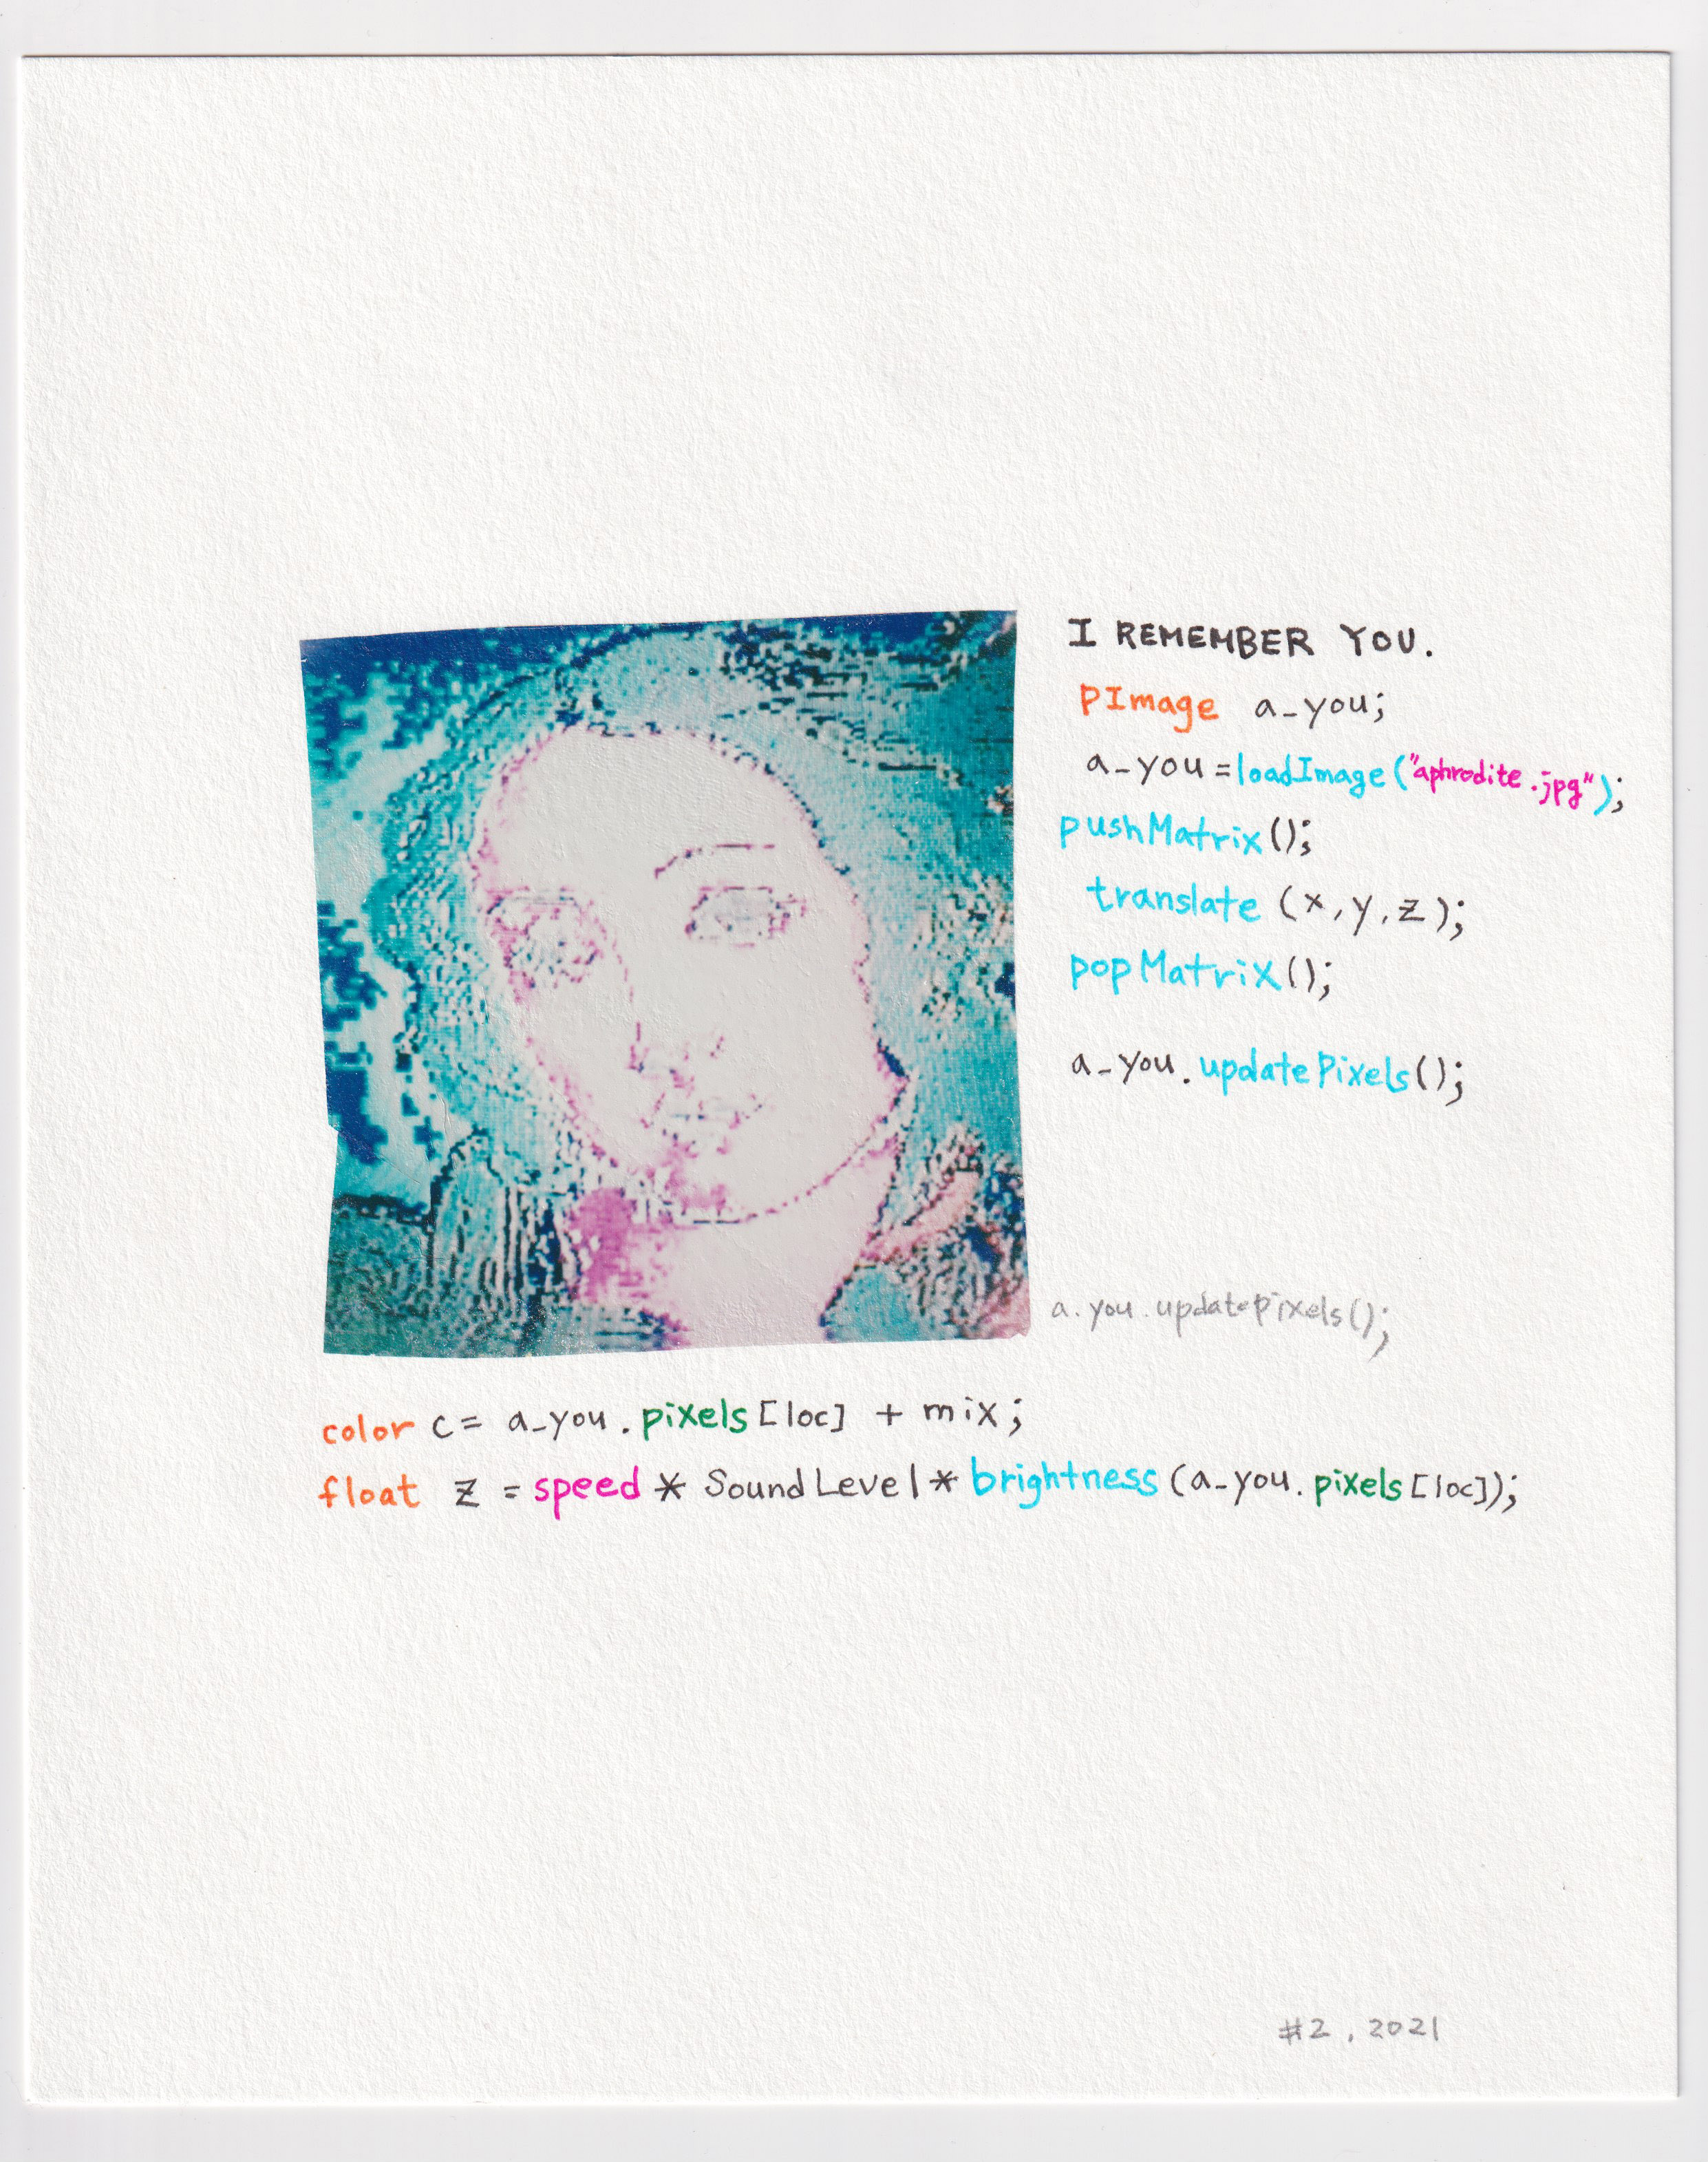 I REMEMBER YOU.
PImage a_you;
a_you = loadImage("aphrodite.jpg");
pushMatrix();
translate (x, y, z);
popMatrix();
a_you.updatePixels();
a.you.updatePixels();
color c = a_you.pixels[loc] + mix;
float z = speed * SoundLevel * brightness (a_you.pixels[loc]);
#2, 2021